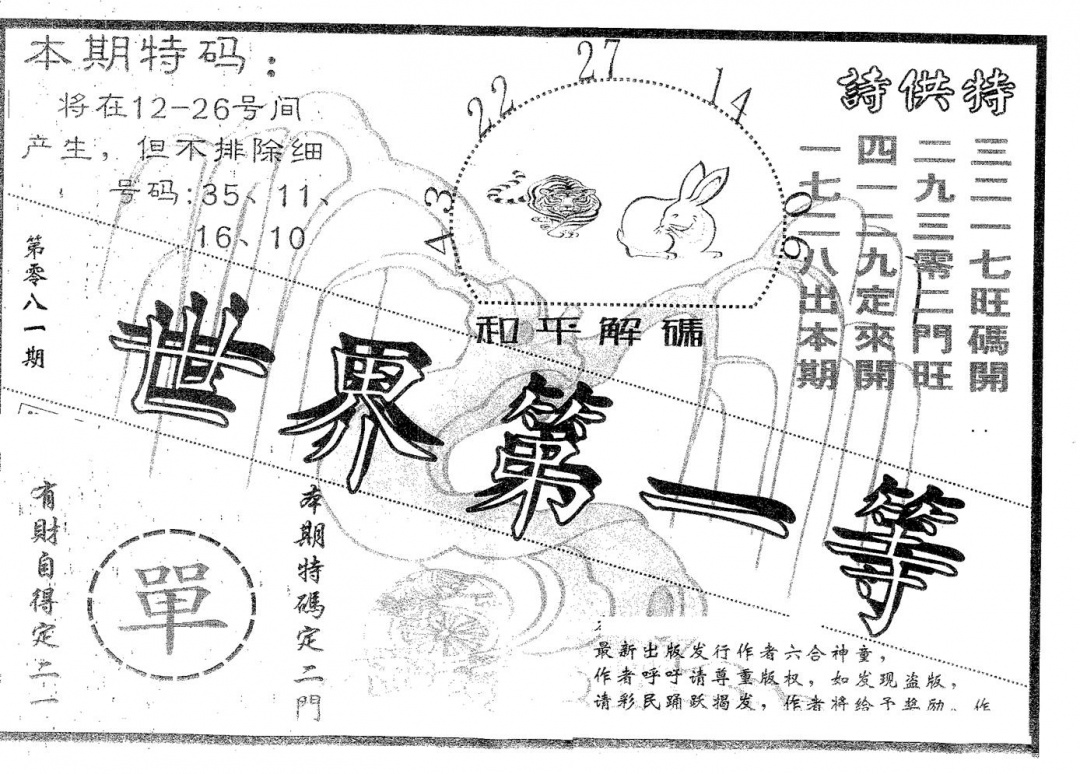 本期特码：
将在12-26号间
产生，但不排除细
号码:35、11、
16、10
第零八一期
22
27
14
43
09
和平解碼
詩供特
三三一七旺碼開
二九三零二門旺
四一二九定來開
一七二八出本期
世界第一等
有財自得定二一
單
本期特碼定二門
最新出版发行作者六合神童，
作者呼吁请尊重版权，如发现盗版，
请彩民踊跃揭发，作者将给予奖励。作